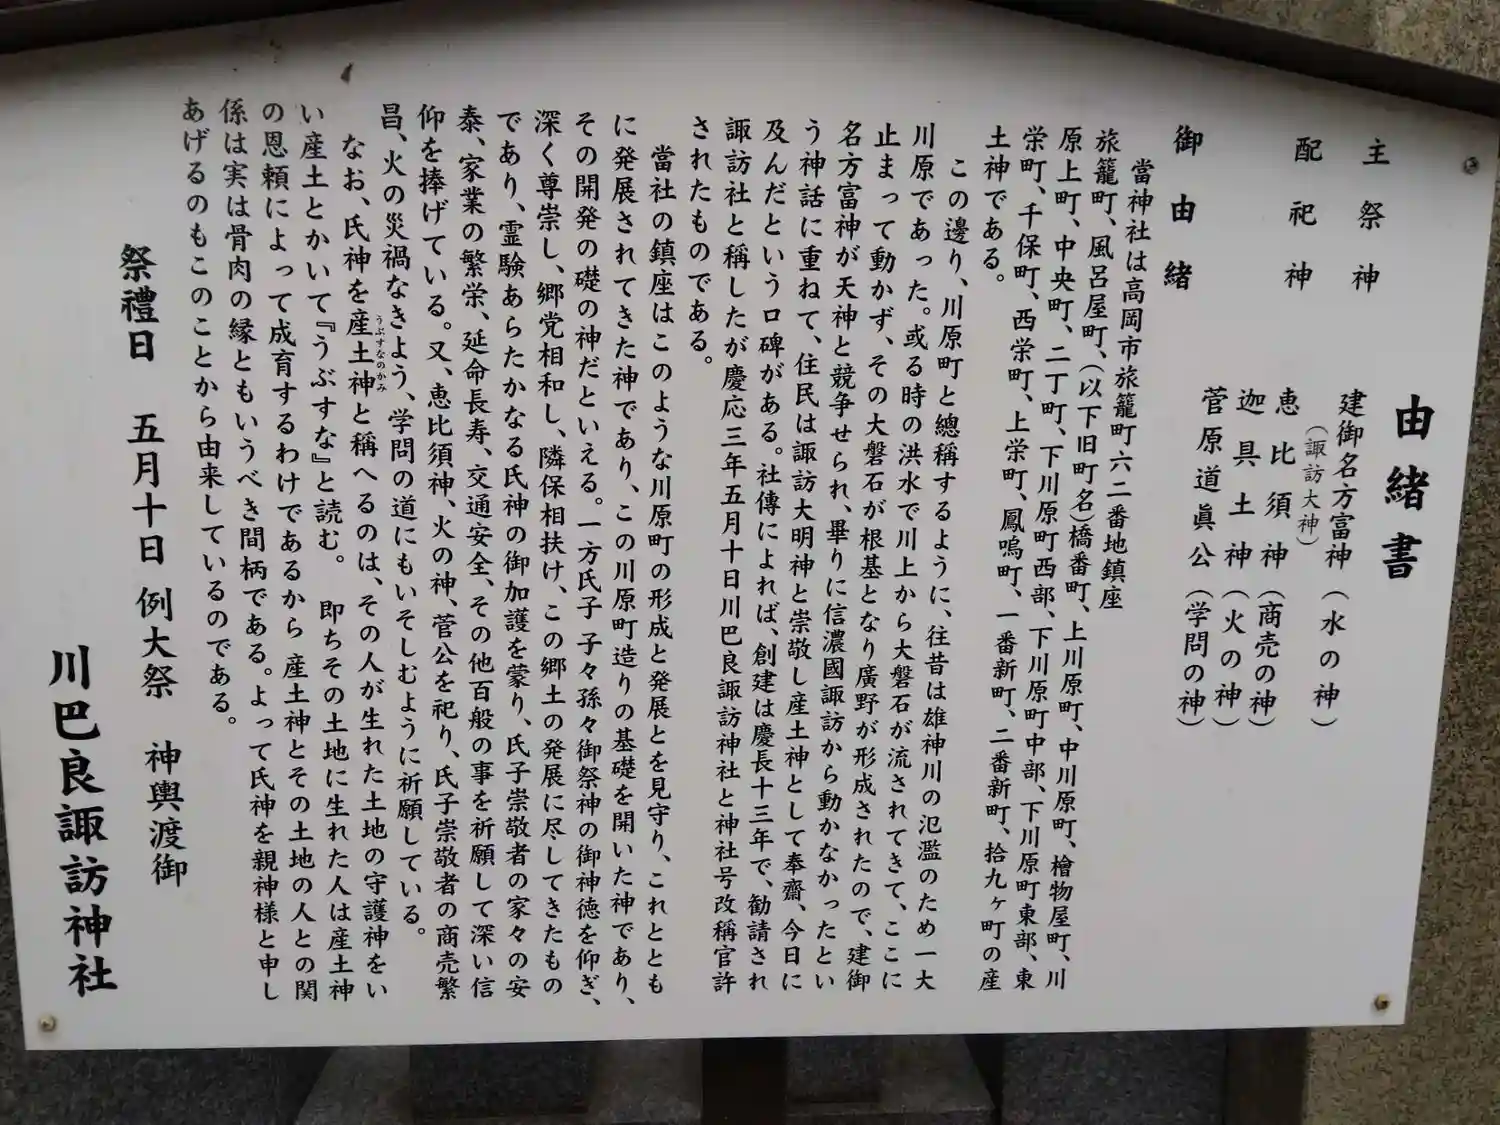 由緒書
主祭神 建御名方富神（水の神）
（諏訪大神）
配祀神 恵比須神（商売の神）
迦具土神（火の神）
菅原道眞公（学問の神）
御由緒
當神社は高岡市旅籠町六二番地鎮座
旅籠町、風呂屋町、（以下旧町名）橋番町、上川原町、中川原町、檜物屋町、川
原上町、中央町、二丁町、下川原町西部、下川原町中部、下川原町東部、東
栄町、千保町、西栄町、上栄町、鳳鳴町、一番新町、二番新町、拾九ヶ町の産
土神である。
この邊り、川原町と總稱するように、往昔は雄神川の氾濫のため一大
川原であった。或る時の洪水で川上から大磐石が流されてきて、ここに
止まって動かず、その大磐石が根基となり廣野が形成されたので、建御
名方富神が天神と競争せられ、畢りに信濃國諏訪から動かなかったとい
う神話に重ねて、住民は諏訪大明神と崇敬し産土神として奉齋、今日に
及んだという口碑がある。社傳によれば、創建は慶長十三年で、勧請され
諏訪社と稱したが慶応三年五月十日川巴良諏訪神社と神社号改稱官許
されたものである。
當社の鎮座はこのような川原町の形成と発展とを見守り、これととも
に発展されてきた神であり、この川原町造りの基礎を開いた神であり、
その開発の礎の神だといえる。一方氏子 子々孫々御祭神の御神徳を仰ぎ、
深く尊崇し、郷党相和し、隣保相扶け、この郷土の発展に尽してきたもの
であり、霊験あらたかなる氏神の御加護を蒙り、氏子崇敬者の家々の安
泰、家業の繁栄、延命長寿、交通安全、その他百般の事を祈願して深い信
仰を捧げている。又、恵比須神、火の神、菅公を祀り、氏子崇敬者の商売繁
昌、火の災禍なきよう、学問の道にもいそしむように祈願している。
なお、氏神を産土神（うぶすなのかみ）と稱へるのは、その人が生れた土地の守護神をい
い産土とかいて『うぶすな』と読む。 即ちその土地に生れた人は産土神
の恩頼によって成育するわけであるから 産土神とその土地の人との関
係は実は骨肉の縁ともいうべき間柄である。よって氏神を親神様と申し
あげるのもこのことから由来しているのである。
祭禮日 五月十日 例大祭 神輿渡御
川巴良諏訪神社